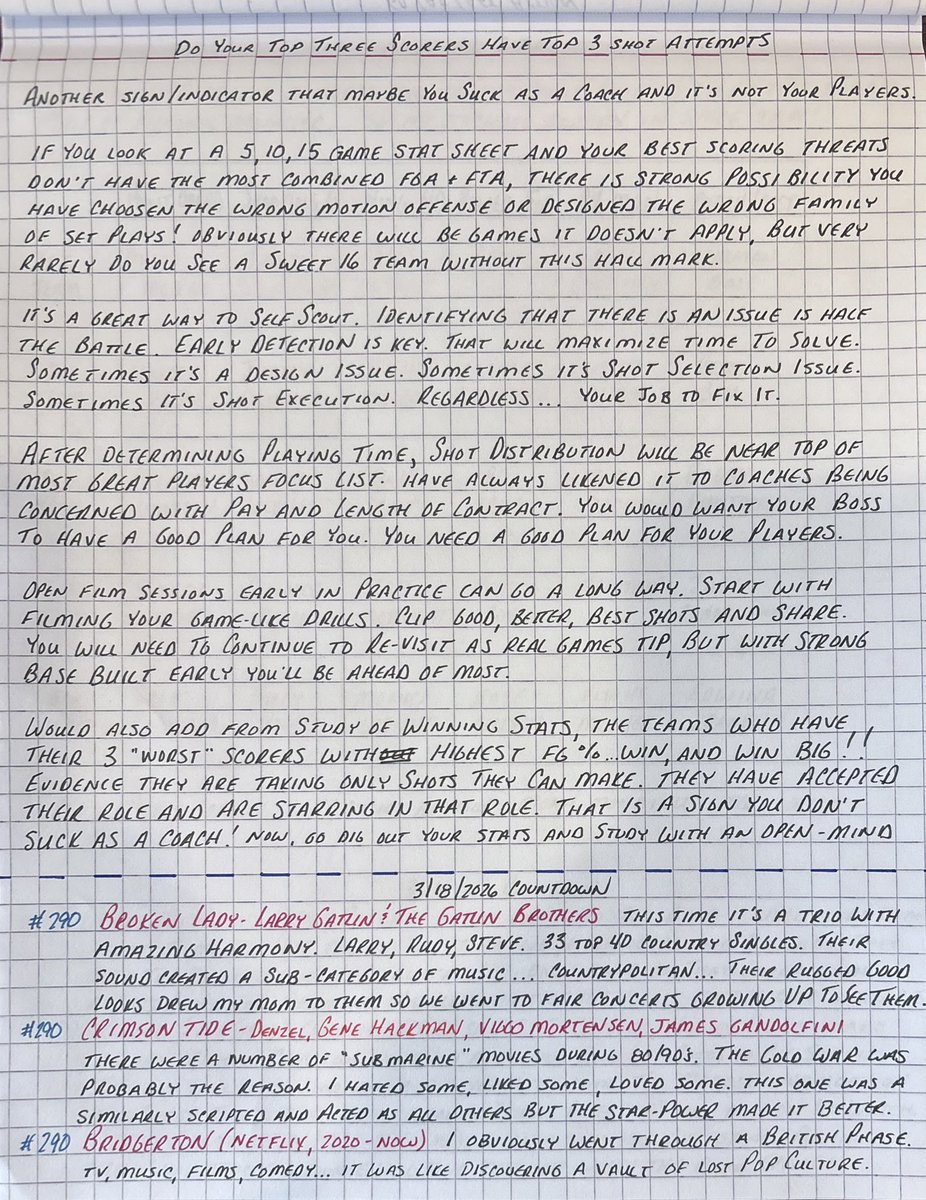 DO YOUR TOP THREE SCORERS HAVE TOP 3 SHOT ATTEMPTS
ANOTHER SIGN/INDICATOR THAT MAYBE YOU SUCK AS A COACH AND IT'S NOT YOUR PLAYERS.
IF YOU LOOK AT A 5, 10, 15 GAME STAT SHEET AND YOUR BEST SCORING THREATS
DON'T HAVE THE MOST COMBINED FGA + FTA, THERE IS STRONG POSSIBILITY YOU
HAVE CHOOSEN THE WRONG MOTION OFFENSE OR DESIGNED THE WRONG FAMILY
OF SET PLAYS! OBVIOUSLY THERE WILL BE GAMES IT DOESN'T APPLY, BUT VERY
RARELY DO YOU SEE A SWEET 16 TEAM WITHOUT THIS HALL MARK.
IT'S A GREAT WAY TO SELF SCOUT. IDENTIFYING THAT THERE IS AN ISSUE IS HALF
THE BATTLE. EARLY DETECTION IS KEY. THAT WILL MAXIMIZE TIME TO SOLVE.
SOMETIMES IT'S A DESIGN ISSUE. SOMETIMES IT'S SHOT SELECTION ISSUE.
SOMETIMES IT'S SHOT EXECUTION. REGARDLESS... YOUR JOB TO FIX IT.
AFTER DETERMINING PLAYING TIME, SHOT DISTRIBUTION WILL BE NEAR TOP OF
MOST GREAT PLAYERS FOCUS LIST. HAVE ALWAYS LIKENED IT TO COACHES BEING
CONCERNED WITH PAY AND LENGTH OF CONTRACT. YOU WOULD WANT YOUR BOSS
TO HAVE A GOOD PLAN FOR YOU. YOU NEED A GOOD PLAN FOR YOUR PLAYERS.
OPEN FILM SESSIONS EARLY IN PRACTICE CAN GO A LONG WAY. START WITH
FILMING YOUR GAME-LIKE DRILLS. CLIP GOOD, BETTER, BEST SHOTS AND SHARE.
YOU WILL NEED TO CONTINUE TO RE-VISIT AS REAL GAMES TIP, BUT WITH STRONG
BASE BUILT EARLY YOU'LL BE AHEAD OF MOST.
WOULD ALSO ADD FROM STUDY OF WINNING STATS, THE TEAMS WHO HAVE
THEIR 3 "WORST" SCORERS WITH HIGHEST FG %... WIN, AND WIN BIG!!
EVIDENCE THEY ARE TAKING ONLY SHOTS THEY CAN MAKE. THEY HAVE ACCEPTED
THEIR ROLE AND ARE STARRING IN THAT ROLE. THAT IS A SIGN YOU DON'T
SUCK AS A COACH! NOW, GO DIG OUT YOUR STATS AND STUDY WITH AN OPEN-MIND
3/18/2026 COUNTDOWN
#290 BROKEN LADY - LARRY GATLIN & THE GATLIN BROTHERS THIS TIME IT'S A TRIO WITH
AMAZING HARMONY. LARRY, RUDY, STEVE. 33 TOP 40 COUNTRY SINGLES. THEIR
SOUND CREATED A SUB-CATEGORY OF MUSIC... COUNTRYPOLITAN... THEIR RUGGED GOOD
LOOKS DREW MY MOM TO THEM SO WE WENT TO FAIR CONCERTS GROWING UP TO SEE THEM.
#290 CRIMSON TIDE - DENZEL, GENE HACKMAN, VIGGO MORTENSEN, JAMES GANDOLFINI
THERE WERE A NUMBER OF "SUBMARINE" MOVIES DURING 80/90'S. THE COLD WAR WAS
PROBABLY THE REASON. I HATED SOME, LIKED SOME, LOVED SOME. THIS ONE WAS A
SIMILARLY SCRIPTED AND ACTED AS ALL OTHERS BUT THE STAR-POWER MADE IT BETTER.
#290 BRIDGERTON (NETFLIX, 2020 - NOW) I OBVIOUSLY WENT THROUGH A BRITISH PHASE.
TV, MUSIC, FILMS, COMEDY... IT WAS LIKE DISCOVERING A VAULT OF LOST POP CULTURE.